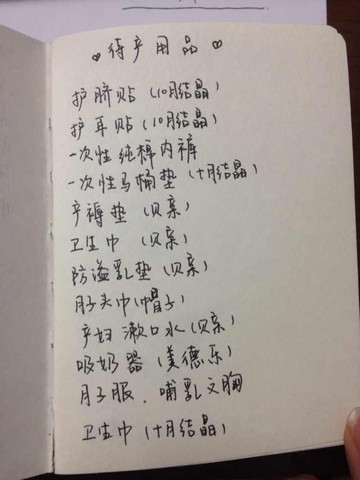 ♥待产用品♥
护脐贴(10月结晶)
护耳贴(10月结晶)
一次性纯棉内裤
一次性马桶垫(十月结晶)
产褥垫(贝亲)
卫生巾(贝亲)
防溢乳垫(贝亲)
月子头巾(帽子)
产妇漱口水(贝亲)
吸奶器(美德乐)
月子服.哺乳文胸
卫生巾(十月结晶)